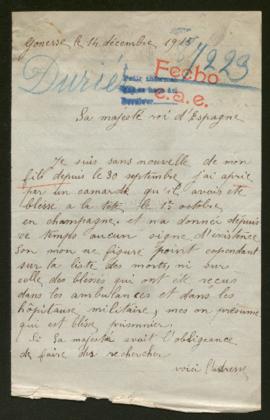 Gonesse le 14 décembre 1915
7223
Durié
Fecho
c.a.e.
Sa majesté roi d'Espagne
Je suis sans nouvelle de mon
fils depuis le 30 septembre j'ai apris
par un camarde qu'il avais éte
blesse a la tete le 1er octobre
en champagne, et na donner depuis
ce temps aucun signe d'existence
Son nom ne figure point cependant
sur la liste des morts, ni sur
celle des blessés qui ont ete recus
dans les ambulances et dans les
hôpitause militaire, mes on présume
qui est blesse prisonnier.
Si Sa majesté avait l'obligeance
de faire des rechercher
voici l'adresse